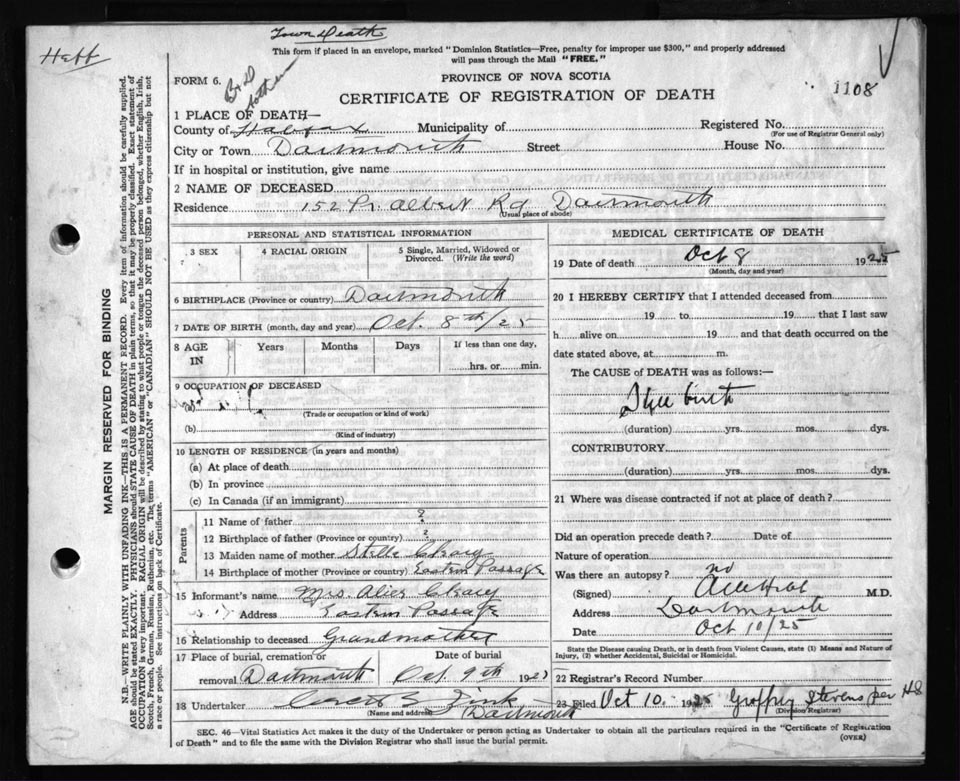 Town Death
Heff
This form if placed in an envelope, marked "Dominion Statistics—Free, penalty for improper use $300," and properly addressed
will pass through the Mail "FREE."
FORM 6.
PROVINCE OF NOVA SCOTIA
1108
CERTIFICATE OF REGISTRATION OF DEATH
1 PLACE OF DEATH—
County of Halifax Municipality of Registered No.
(For use of Registrar General only)
City or Town Dartmouth Street House No.
If in hospital or institution, give name
2 NAME OF DECEASED
Residence 152 Pr. Albert Rd Dartmouth
(Usual place of abode)
PERSONAL AND STATISTICAL INFORMATION
3 SEX 4 RACIAL ORIGIN 5 Single, Married, Widowed or
Divorced. (Write the word)
6 BIRTHPLACE (Province or country) Dartmouth
7 DATE OF BIRTH (month, day and year) Oct. 8th/25
8 AGE IN Years Months Days If less than one day,
hrs. or min.
9 OCCUPATION OF DECEASED
(a)
(Trade or occupation or kind of work)
(b)
(Kind of industry)
10 LENGTH OF RESIDENCE (in years and months)
(a) At place of death
(b) In province
(c) In Canada (if an immigrant)
Parents
11 Name of father ?
12 Birthplace of father (Province or country) ?
13 Maiden name of mother Stella
14 Birthplace of mother (Province or country) Eastern Passage
15 Informant's name Mrs. Alice
Address Eastern Passage
16 Relationship to deceased Grandmother
17 Place of burial, cremation or Date of burial
removal Dartmouth Oct 9th 1925
18 Undertaker
(Name and address) Dartmouth
MEDICAL CERTIFICATE OF DEATH
19 Date of death Oct 8 1925
(Month, day and year)
20 I HEREBY CERTIFY that I attended deceased from
19 to 19 that I last saw
h alive on 19 and that death occurred on the
date stated above, at m.
The CAUSE of DEATH was as follows:—
Still birth
(duration) yrs. mos. dys.
CONTRIBUTORY
(duration) yrs. mos. dys.
21 Where was disease contracted if not at place of death?
Did an operation precede death? Date of
Nature of operation
Was there an autopsy? no
(Signed) M.D.
Address Dartmouth
Date Oct 10/25
State the Disease causing Death, or in death from Violent Causes, state (1) Means and Nature of
Injury, (2) whether Accidental, Suicidal or Homicidal.
22 Registrar's Record Number
23 Filed Oct 10. 1925 Stevens per HS
(Division Registrar)
SEC. 46—Vital Statistics Act makes it the duty of the Undertaker or person acting as Undertaker to obtain all the particulars required in the "Certificate of Registration
of Death" and to file the same with the Division Registrar who shall issue the burial permit.
(OVER)
MARGIN RESERVED FOR BINDING
N.B.—WRITE PLAINLY WITH UNFADING INK—THIS IS A PERMANENT RECORD. Every item of information should be carefully supplied.
AGE should be stated EXACTLY. PHYSICIANS should STATE CAUSE OF DEATH in plain terms, so that it may be properly classified. Exact statement of
OCCUPATION is very important. RACIAL ORIGIN will be described by stating to what people or tongue the deceased person belonged, whether English, Irish,
Scotch, French, German, Russian, Ruthenian, etc. The terms "AMERICAN" or "CANADIAN" SHOULD NOT BE USED as they express citizenship but not
a race or people. See instructions on back of Certificate.